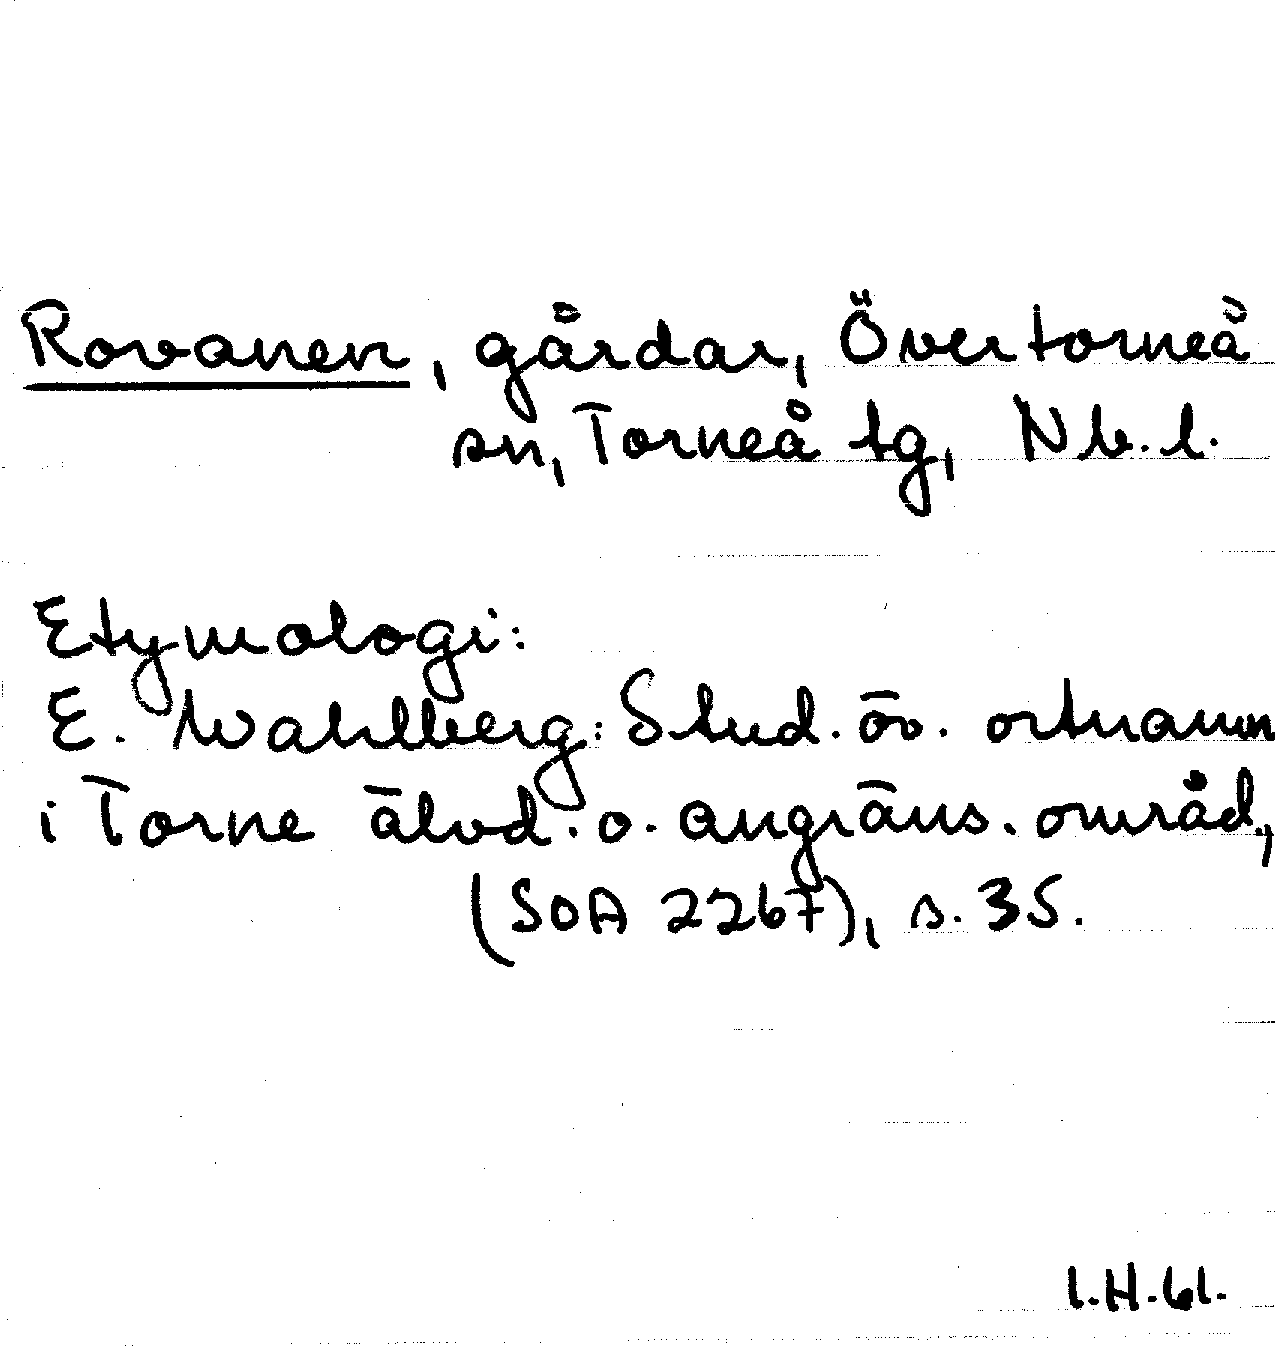 Rovanen, gårdar, Övertorneå
sn, Torneå tg, Nb.l.
Etymologi:
E. Wahlberg: Stud. öv. ortnamn
i Torne älvd. o. angräns. områd.,
(SOA 2267), s. 35.
I.H.61.